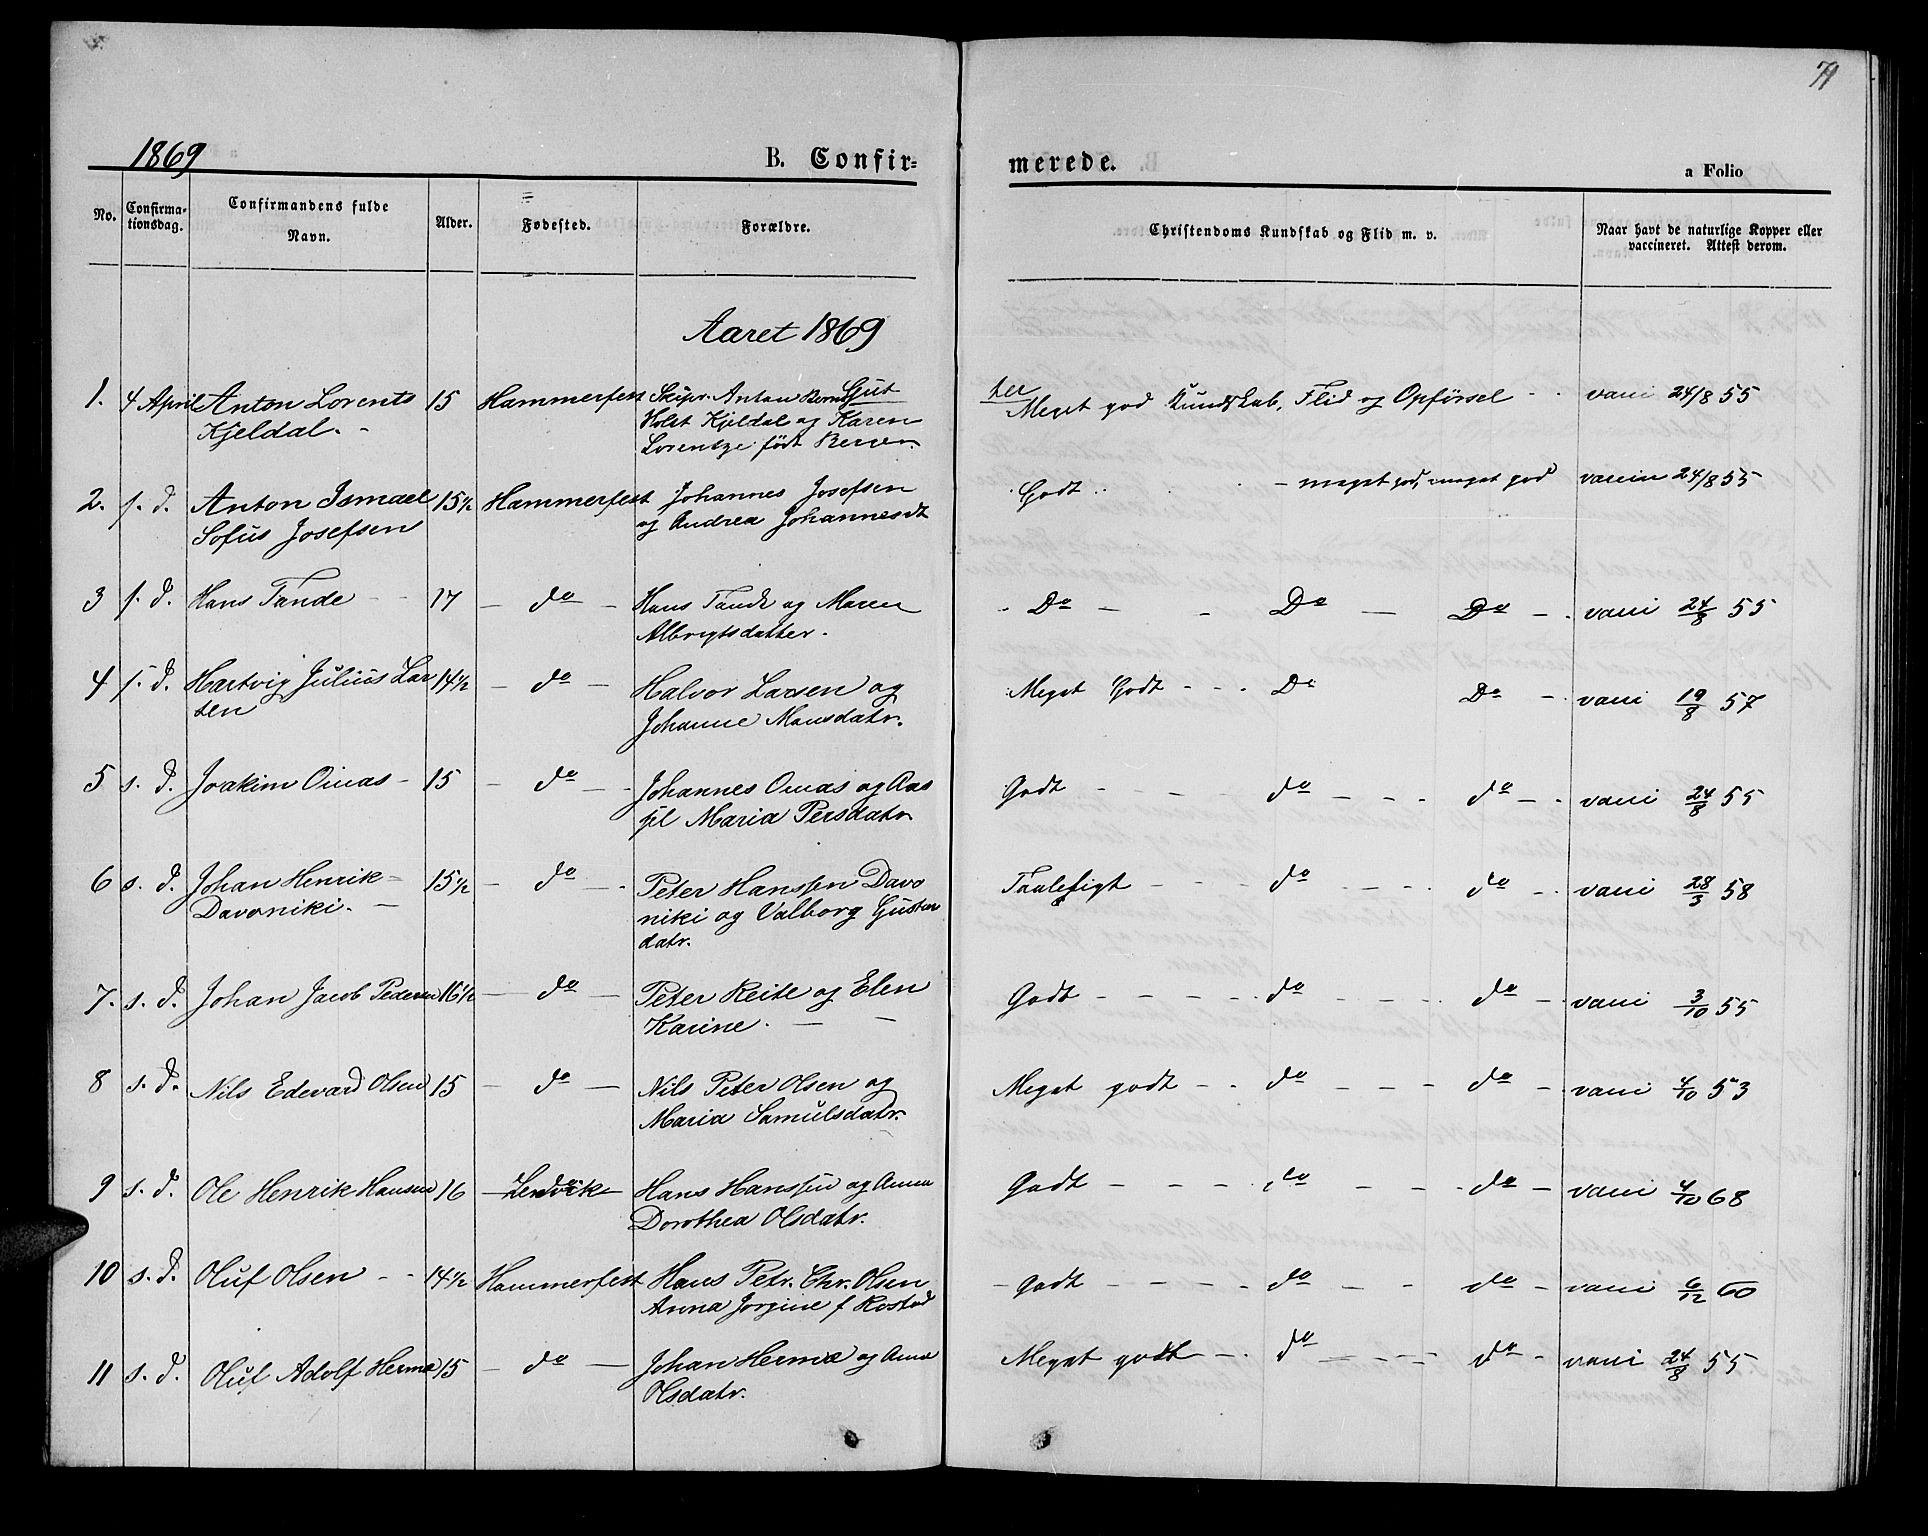 71
1869 B. Confir= merede. a Folio
No. Confirma-tionsdag. Confirmandens fulde Navn. Alder. Fødested. Forældre. Christendoms Kundskab og Flid m. v. Naar havt de naturlige Kopper eller vaccineret. Attest derom.
Aaret 1869
1. 4 April Anton Lorents 15 Hammerfest Skipr. Anton Gjut Meget god Kundskab, Flid og Opførsel - - vacci 24/8 55
Kjeldal. - Holst Kjeldal og Karen
Lorentze født
2. s. d. Anton Ismael 15½ Hammerfest Johannes Josefsen Godt - meget god, meget god vaccin 24/8 55
Sofus Josefsen og Andrea Johannesdt
3 s. d. Hans Tande - - 17 - do - Hans Tande og Maren - Do - - Do - Do - vacci 24/8 55
Albrigtsdatter.
4 s. d. Hartvig Julius Lar 14½ - do - Halvor Larsen og Meget Godt - - - Do Do - vacci 19/8 57
sen Johanne Mansdatr.
5 s. d. Joakim Oinas - 15 - do - - Johannes Oinas og Aas Godt - - - - do - - - do - - vacci 24/8 55
jil Maria Persdatr
6 s. d. Johan Henrik - 15½ - do - - Peter Hanssen Davo Taaleligt - - - do - - - do - - vacci 28/3 58
Davoniki. - niki og Valborg Gustav
datr.
7. s. d. Johan Jacob Pedersen 16½ - do - Peter Reite og Elen Godt - - - - - do - - - do - vacci 3/10 55
Karine. - -
8 s. d. Nils Edevard Olsen 15 - do - Nils Peter Olsen og Meget godt - - do - - - do - vacci 4/10 53
Maria Samulsdatr.
9 s. d. Ole Henrik Hansen 16 Hans Hanssen og Anna Godt - - - - do - - - do - vacci 4/10 68
Dorothea Olsdatr.
10 s. d. Oluf Olsen - - 14½ Hammerfest Hans Petr. Chr. Olsen - Godt - - - - do - - do - vacci 6/12 60
Anna Jorgine f Rostad
11 s. d. Oluf Adolf Herma 15 - do - Johan Herma og Anna Meget godt - - do - - - - do - - vacci 24/8 55
Olsdatr.